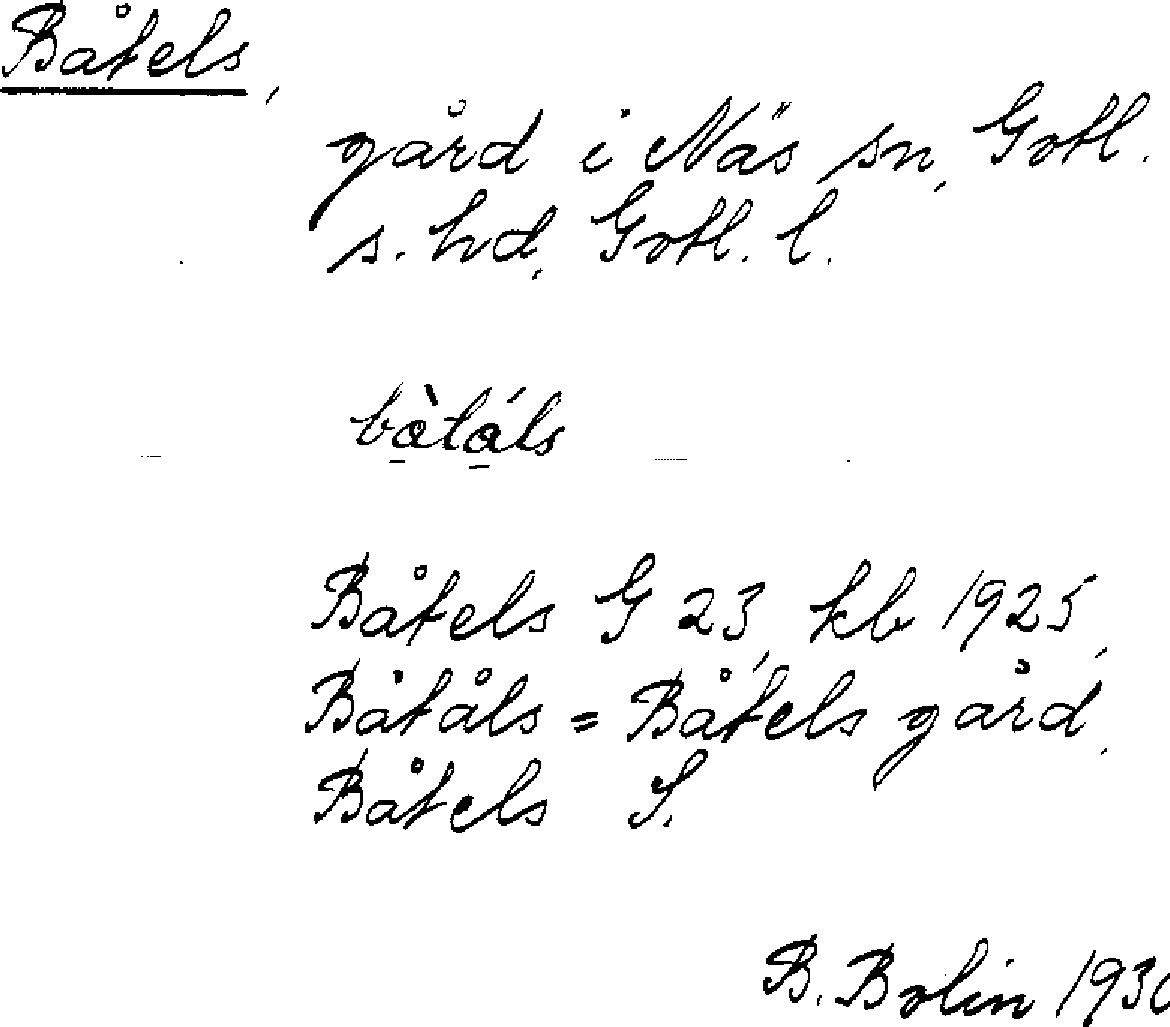 Båtels,
gård i Näs sn, Gotl.
s. hd, Gotl. l.
bå̱̀tǻ̱ls
Båtels G 23, kb 1925,
Båtåls = Båtels gård,
Båtels S.
B. Bolin 193